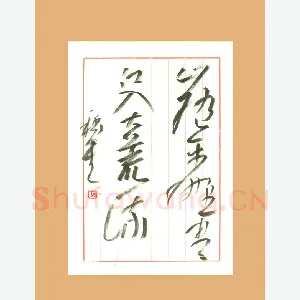 山随平野尽
江入大荒流
Shufawang.CN